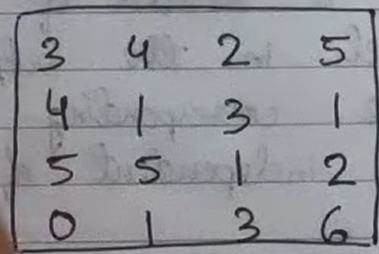 3 4 2 5
4 1 3 1
5 5 1 2
0 1 3 6